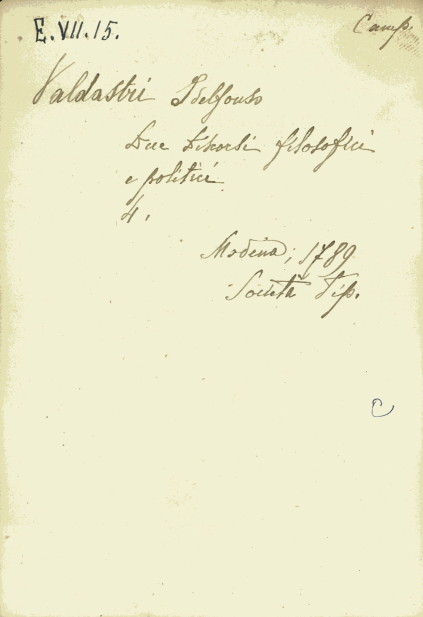 E.VII.15.
Camp.
Valdastri Idelfonso
Due Discorsi filosofici
e politici
4.
Modena, 1789
Società Tip.
C